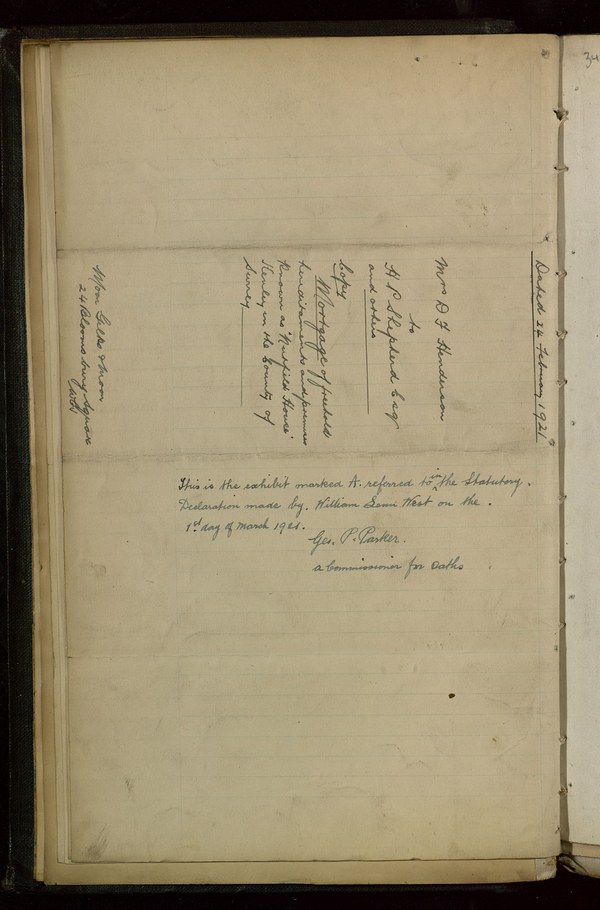 Dated 24 February 1921
Mrs D F Henderson
to
H P Shepherd Esq
and others
Copy
Mortgage of freehold
hereditaments and premises
known as "Nutfield House"
Henley in the County of
Surrey
24 Bloomsbury Square
This is the exhibit marked A. referred to in the Statutory.
Declaration made by. William West on the.
1st day of March 1921.
Geo. P. Parker.
a Commissioner for Oaths
34